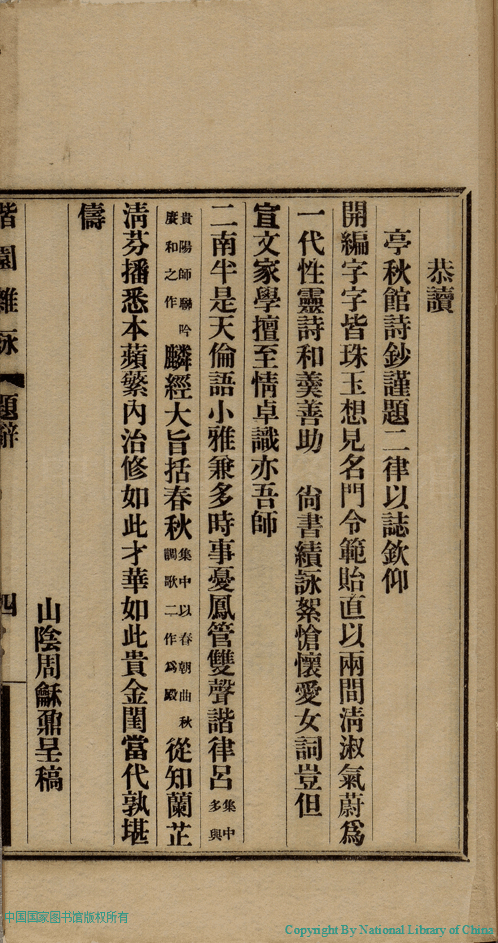 恭讀
亭秋館詩鈔謹題二律以誌欽仰
開編字字皆珠玉想見名門令範貽直以兩間清淑氣蔚爲
一代性靈詩和羹善助　尙書績詠絮愴懷愛女詞豈但
宣文家學擅至情卓識亦吾師
二南半是天倫語小雅兼多時事憂鳳管雙聲諧律呂集中多與
貴陽師聯吟賡和之作麟經大旨括春秋集中以春朝曲秋闈歌二作爲殿從知蘭芷
清芬播悉本蘋蘩內治修如此才華如此貴金閨當代孰堪
儔
山陰周龢鼐呈稿
偕園雜詠
題辭
四
中国国家图书馆版权所有
Copyright By National Library of China